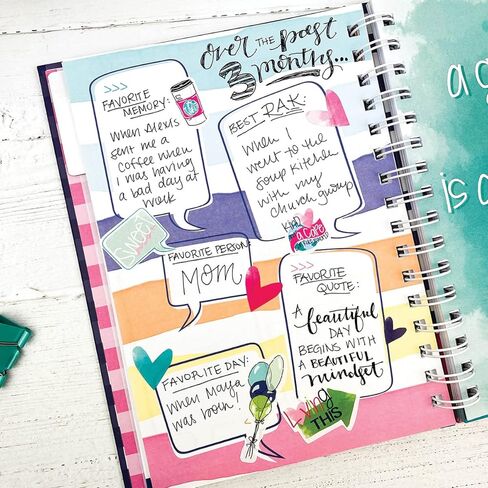 over the past
3 months...
>>>
FAVORITE
MEMORY:
When Alexis
sent me a
coffee when
I was having
a bad day at
work
BEST RAK:
When I
went to the
soup kitchen
with my
church group
SWEET
FAVORITE PERSON
MOM
>>>
FAVORITE
QUOTE:
A beautiful
DAY
BEGINS WITH
A BEAUTIFUL
mindset
FAVORITE DAY:
When Maya
was born!
Living
THIS
a
is a